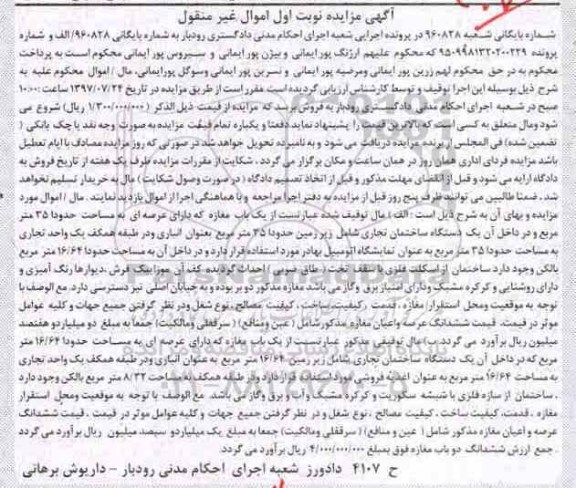 آگهی مزایده نوبت اول اموال غیر منقول
شماره بایگانی شعبه ۹۶۰۸۲۸ در پرونده اجرایی شعبه اجرای احکام مدنی دادگستری رودبار به شماره بایگانی ۹۶۰۸۲۸/الف و شماره
پرونده ۹۵۰۹۹۸۱۳۲۰۲۰۰۲۲۹ که محکوم علیهم ارژنگ پور ایمانی و بیژن پور ایمانی و سیروس پور ایمانی محکوم است به پرداخت
محکوم به در حق محکوم لهم زرین پور ایمانی ومرضیه پور ایمانی و نسرین پور ایمانی وسوگل پورایمانی، مال / اموال محکوم علیه به
شرح ذیل بوسیله این اجرا توقیف و توسط کارشناس ارزیابی گردیده است مقرر است از طریق مزایده در تاریخ ۱۳۹۷/۰۷/۲۴ ساعت: ۱۰:۰۰
صبح در شعبه اجرای احکام مدنی دادگستری رودبار به فروش برسد که مزایده از قیمت ذیل الذکر ( ۱/۳۰۰/۰۰۰/۰۰۰ ریال) شروع می
شود ومال متعلق به کسی است که بالاترین قیمت را پیشنهاد نماید دفعتا و یکباره تمام قیمت مزایده به صورت وجه نقد یا چک بانکی (
تضمین شده) فی المجلس از برنده مزایده دریافت می شود و به نامبرده تحویل خواهد شد در صورتی که روز مزایده مصادف با ایام تعطیل
باشد مزایده فردای اداری همان روز در همان ساعت و مکان برگزار می گردد . شکایت از مقررات مزایده ظرف یک هفته از تاریخ فروش به
دادگاه ارایه می شود و قبل از انقضای مهلت مذکور و قبل از اتخاذ تصمیم دادگاه ( در صورت وصول شکایت) مال به خریدار تسلیم نخواهد
شد . ضمنا طالبین می توانند ظرف پنج روز قبل از مزایده به دفتر اجرا مراجعه و با هماهنگی اجرا از اموال بازدید نمایند. مال / اموال مورد
مزایده و بهای آن به شرح ذیل است : الف ) مال توقیف شده عبارتست از یک باب مغازه که دارای عرصه ای به مساحت حدودا ۳۵ متر
مربع و در داخل آن یک دستگاه ساختمان تجاری شامل زیرزمین حدودا ۳۵ متر مربع بعنوان انباری ودر طبقه همکف یک واحد تجاری
به مساحت حدودا ۳۵ متر مربع به عنوان نمایشگاه اتومبیل بهادر مورد استفاده قرار دارد و در داخل آن به مساحت حدودا ۱۶/۶۴ متر مربع
بالکن وجود دارد ساختمان از اسکلت فلزی با سقف تخت ( طاق ضربی ) احداث گردیده کف آن موزاییک فرش ،دیوارها رنگ آمیزی و
دارای روشنایی و کرکره مشبک ودارای امتیاز برق وگاز می باشد مغازه مذکور دو بر بوده و به خیابان اصلی نیز دسترسی دارد. مع الوصف با
توجه به موقعیت ومحل استقرار مغازه، قدمت، کیفیت ساخت، کیفیت مصالح، نوع شغل ودر نظر گرفتن جمیع جهات و کلیه عوامل
موثر در قیمت، قیمت ششدانگ عرصه واعیان مغازه مذکور شامل ( عین ومنافع) ( سرقفلی ومالکیت) جمعا به مبلغ دو میلیارد و هفتصد
میلیون ریال برآورد می گردد. ب) مال توقیفی مذکور عبارتست از یک باب مغازه که دارای عرصه ای به مساحت حدودا ۱۶/۶۴ متر
مربع که در داخل آن یک دستگاه ساختمان تجاری شامل زیر زمین ۱۶/۶۴ متر مربع به عنوان انباری ودر طبقه همکف یک واحد تجاری
به مساحت ۱۶/۶۴ متر مربع به عنوان اغذیه فروشی مورد استفاده قرار دارد و در طبقه همکف به مساحت ۸/۳۲ متر مربع بالکن وجود دارد
. ساختمان از سازه فلزی با شیشه سکوریت و کرکره مشبک وآب ، برق وگاز می باشد مع الوصف با توجه به موقعیت ومحل استقرار
مغازه ، قدمت، کیفیت ساخت ، کیفیت مصالح ، نوع شغل و در نظر گرفتن جمیع جهات و کلیه عوامل موثر در قیمت ، قیمت ششدانگ
عرصه و اعیان مغازه مذکور شامل ( عین و منافع) ( سرقفلی ومالکیت) جمعا به مبلغ یک میلیاردو سیصد میلیون ریال برآورد می گردد
. جمع ارزش ششدانگ دو باب مغازه فوق بمبلغ ۴/۰۰۰/۰۰۰/۰۰۰ ریال برآورد می گردد.
ح ۴۱۰۷ دادورز شعبه اجرای احکام مدنی رودبار – داریوش برهانی